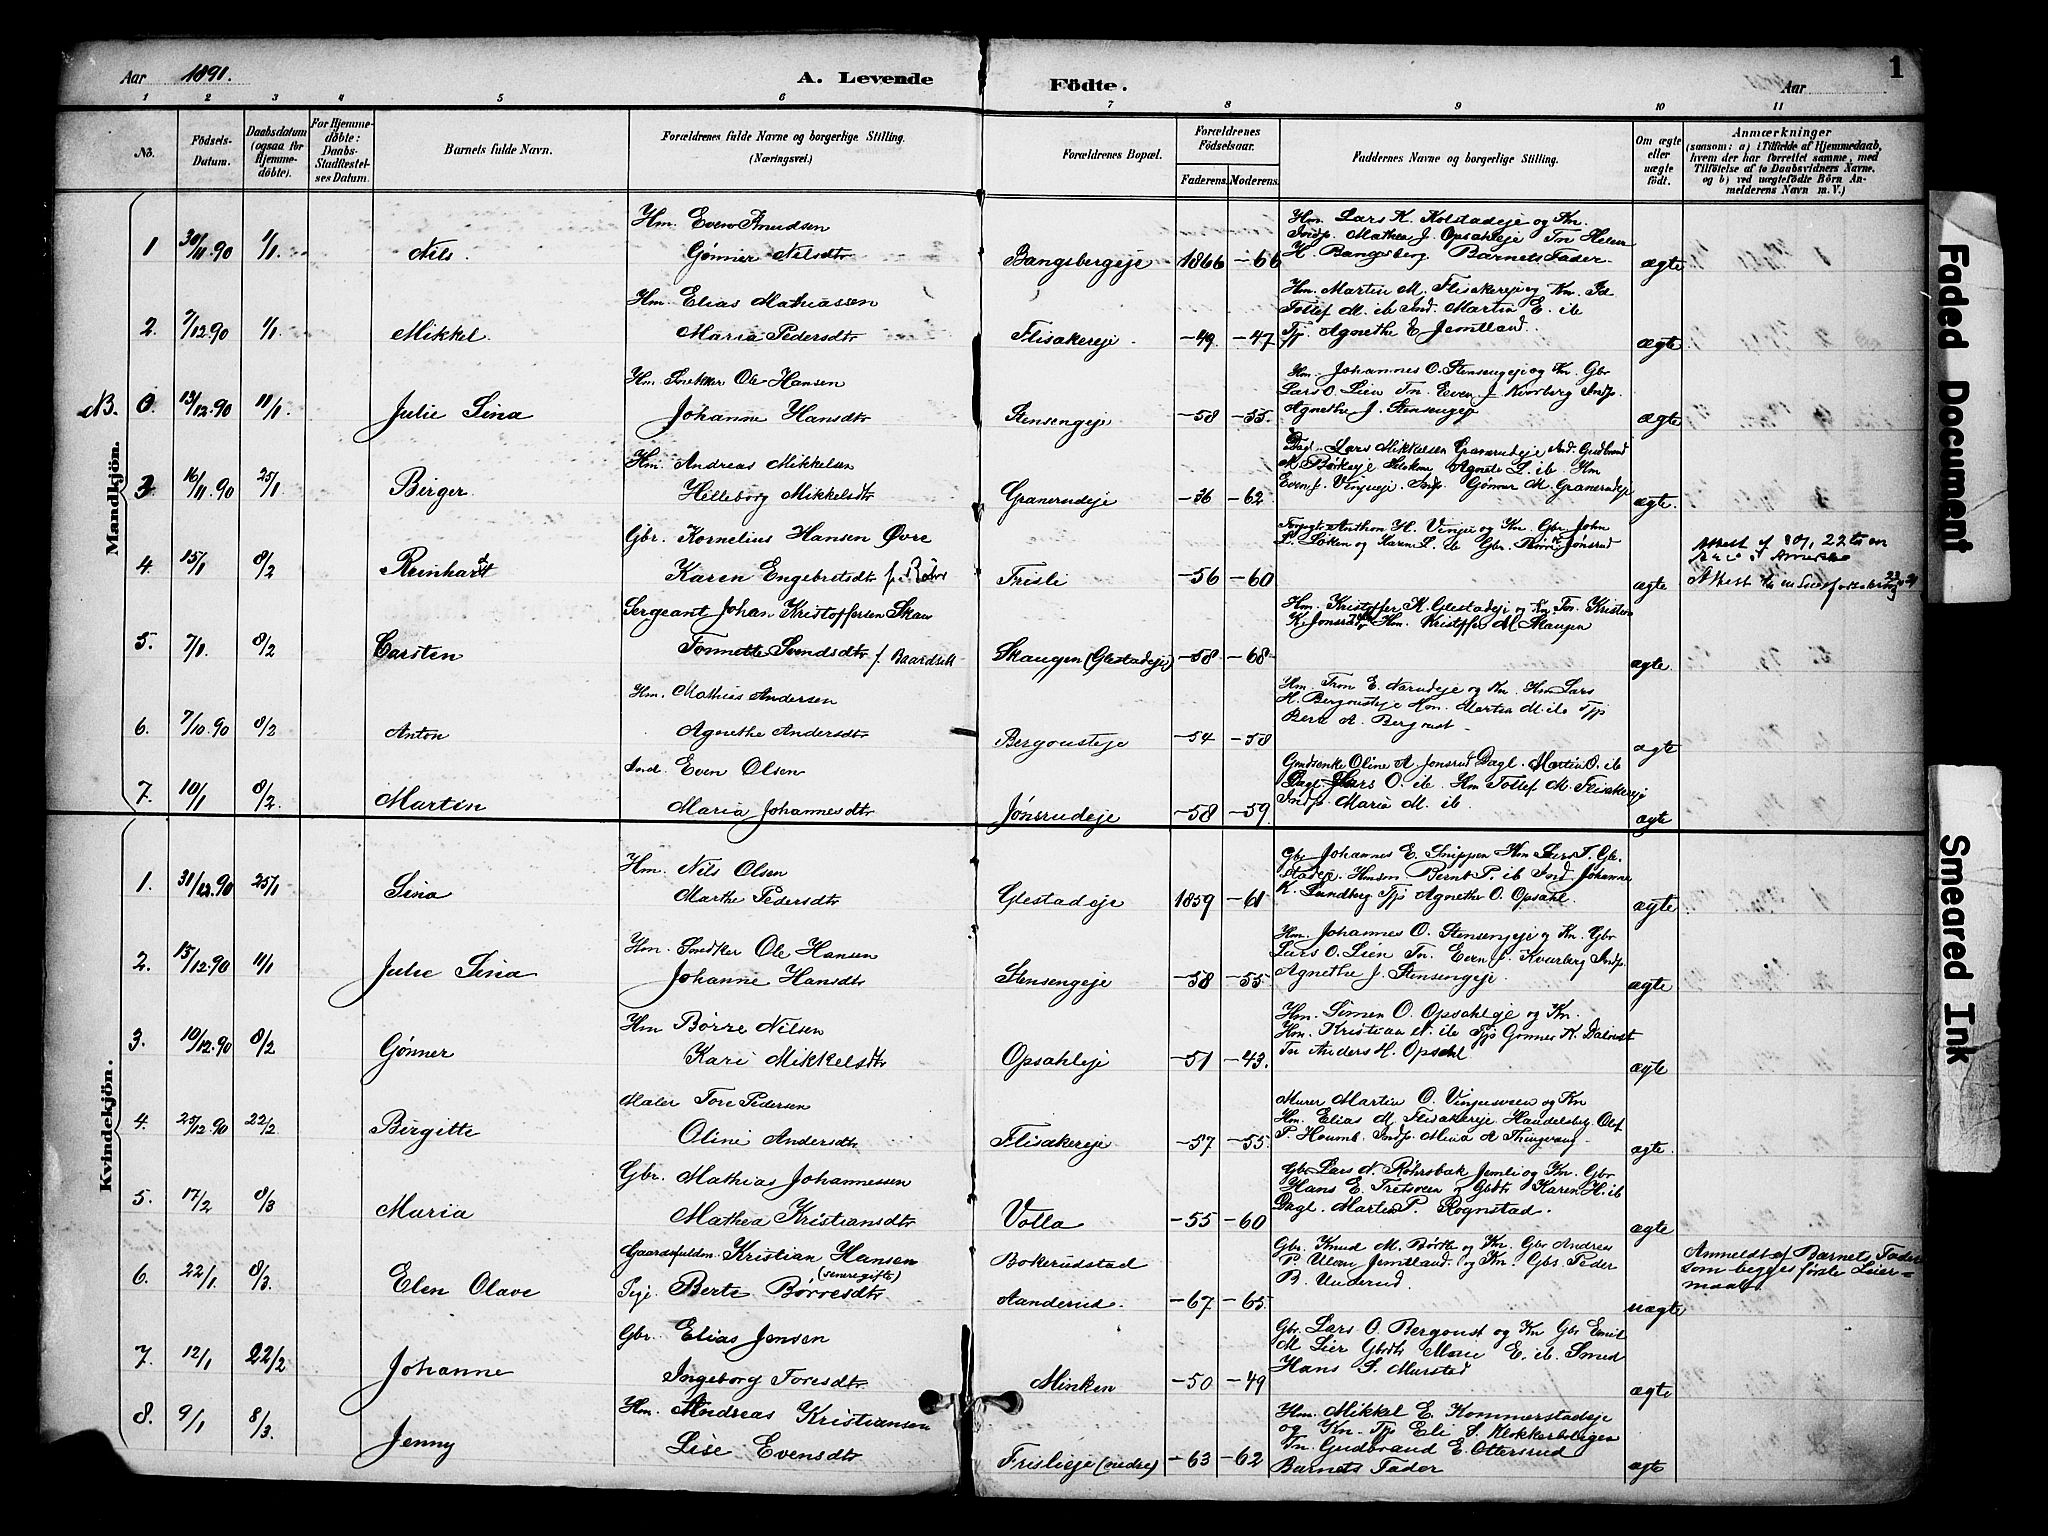 Aar 1891.
A. Levende Födte.
Aar
1
1 2 3 4 5 6 7 8 9 10 11
No.
Födsels-Datum.
Daabsdatum (ogsaa for Hjemmedöbte).
For Hjemmedöbte: Daabs-Stadfæstelses Datum.
Barnets fulde Navn.
Forældrenes fulde Navne og borgerlige Stilling. (Næringsvei.)
Forældrenes Bopæl.
Forældrenes Födselsaar.
Faderens. Moderens.
Faddernes Navne og borgerlige Stilling.
Om ægte eller uægte født.
Anmærkninger
(saasom: a) i Tilfælde af Hjemmedaab, hvem der har forrettet samme, med Tilföielse af to Daabsvidners Navne, og b) ved uægtefödte Börn Anmelderens Navn m. V.)
Mandkjön.
1 30/11.90 1/1 Nils.
Hm. Even Amundsen
Gønner Nilsdtr
Bangsbergeje 1866 -66
Hm. Lars K. Kolstadeje og Kn.
Indp. Mathea J. Opsahleje Tn Helen
H. Bangsberg Barnets Fader
ægte
2. 7/12.90 1/1 Mikkel.
Hm Elias Mathiassen
Maria Pedersdtr
Flisakereje. -49. -47
Hm. Martin M. Flisakereje og Kn.
Tollef M. ib Ind. Martin E. ib
Tjp Agnethe E Jemtland.
ægte
NB. 0. 13/12.90 11/1. Julie Sina
Hm. Snekker Ole Hansen
Johanne Hansdtr
Stensengeje -58 -55.
Hm. Johannes O. Stensengeje og Kn. Gbr
Lars O. Lien Tn. Even J. Kvarberg Indp.
Agnethe J. Stensengeje
ægte
3. 16/11.90 25/1 Birger.
Hm. Andreas Mikkelsen
Helleborg Mikkelsdtr
Granerudeje -36 -62.
Dagl. Lars Mikkelsen Granerudeje Ind. Gudbrand
Even J. Vingeje. Indp. Gønner M. Granerudeje
ægte.
4. 15/1 8/2 Reinhardt
Gbr. Kornelius Hansen Øvre
Karen Engebretsdtr
Frisli -56 -60
Anthon H. Vinje og Kn. Gbr. John
ægte
Attest
5. 7/1. 8/2 Carsten
Sergeant Johan Kristoffersen Skau
Tonnette Svendsdtr f. Baardseth
Skaugen (Glestadeje) -58 -68
Hm. Kristoffer K. Glestadeje og Kn Tn. Kristian
K. Jonsrud, Hm. Kristoffer M Skaugen
ægte
6. 7/10.90 8/2 Anton
Hm. Mathias Andersen
Agnethe Andersdtr
Bergousteje -54 -58
Hm. Tron E. Narudeje og Kn. Hm Lars
H. Bergousteje Kon. Martia M. ib Tjp
Bera A. Bergoust
ægte
7. 10/1 8/2. Martin
Ind. Even Olsen
Maria Johannesdtr
Jønsrudeje -58 -59.
Gmdsenke Oline A. Jonsrud Dagl. Martin O. ib
Dagl. Lars O. ib. Hm Tollef M. Flisakereje
Indp. Marie M. ib.
ægte
Kvindekjön.
1. 31/12.90 25/1 Sina
Hm. Nils Olsen
Marthe Pedersdtr
Glestadeje 1859 -61
Gbr Johannes E. Snippen Hm Lars T. Gle-
stadeje. Hmsøn Bernt P. ib Ind Johanne
K. Sundberg Tjp Agnethe O. Opsahl.
ægte
2. 13/12.90 11/1 Julie Sina
Hm. Snedker Ole Hansen
Johanne Hansdtr
Stensengeje -58 -55
Hm. Johannes O. Stensengeje og Kn. Gbr
Lars O. Lien Tn. Even J. Kvarberg Indp.
Agnethe J. Stensengeje.
ægte
3. 10/12.90 8/2 Gønner
Hm Børre Nilsen
Kari Mikkelsdtr
Opsahleje -51 -43.
Hm. Simen O. Opsahleje og Kn.
Hm. Kristian N. ib Tjp Gønner K. Daloust
Tn Anders H. Opsahl
ægte
4. 25/12.90 22/2 Birgitte
Maler Tore Pedersen
Oline Andersdtr
Flisakereje -57 -55
Murer Martin O. Vingersveen og Kn
Hm. Elias M. Flisakereje Handelsbg. Olof
P. Houmb. Indp. Mina A Thingvang
ægte.
5. 17/2 8/3 Maria
Gbr. Mathias Johannessen
Mathea Kristiansdtr
Volla -55 -60
Gbr Lars N. Røhrsbak Jemli og Kn. Gbr
Hans E. Tretsveen og Gbdtr Karen H. ib
Dagl. Martin P. Rognstad.
ægte
6. 22/1 8/3. Elen Olave
Gaardsfuldm. Kristian Hansen
(senere gifte)
Pige. Berte Børresdtr
Bokerudstad
Aanderud. -67 -65
Gbr. Knud M. Børke og Kn. Gbr Andreas
P. Ulven Jemtland. og Kn. Gbr. Peder
B. Underud.
uægte
Anmeldt af Barnets Fader
som begges første Leier-
maal.
7. 12/1 22/2 Johanne
Gbr. Elias Jensen
Ingeborg Toresdtr
Minken -50 -49
Gbr. Lars O. Bergoust og Kn Gbr Emil
M Lier Gbdtr Marie E. ib. Smed
Hans S. Murstad
ægte
8. 9/1 8/3. Jenny
Hm. Andreas Kristiansen
Lise Evensdtr
Frislieje (nedre) -63 -62
Hm. Mikkel E. Kommerstadeje
og Kn. Tjp Eli S. Klokkerboligen
Tn. Gudbrand E. Ottersrud
Barnets Fader
ægte
Faded Document
Smeared Ink